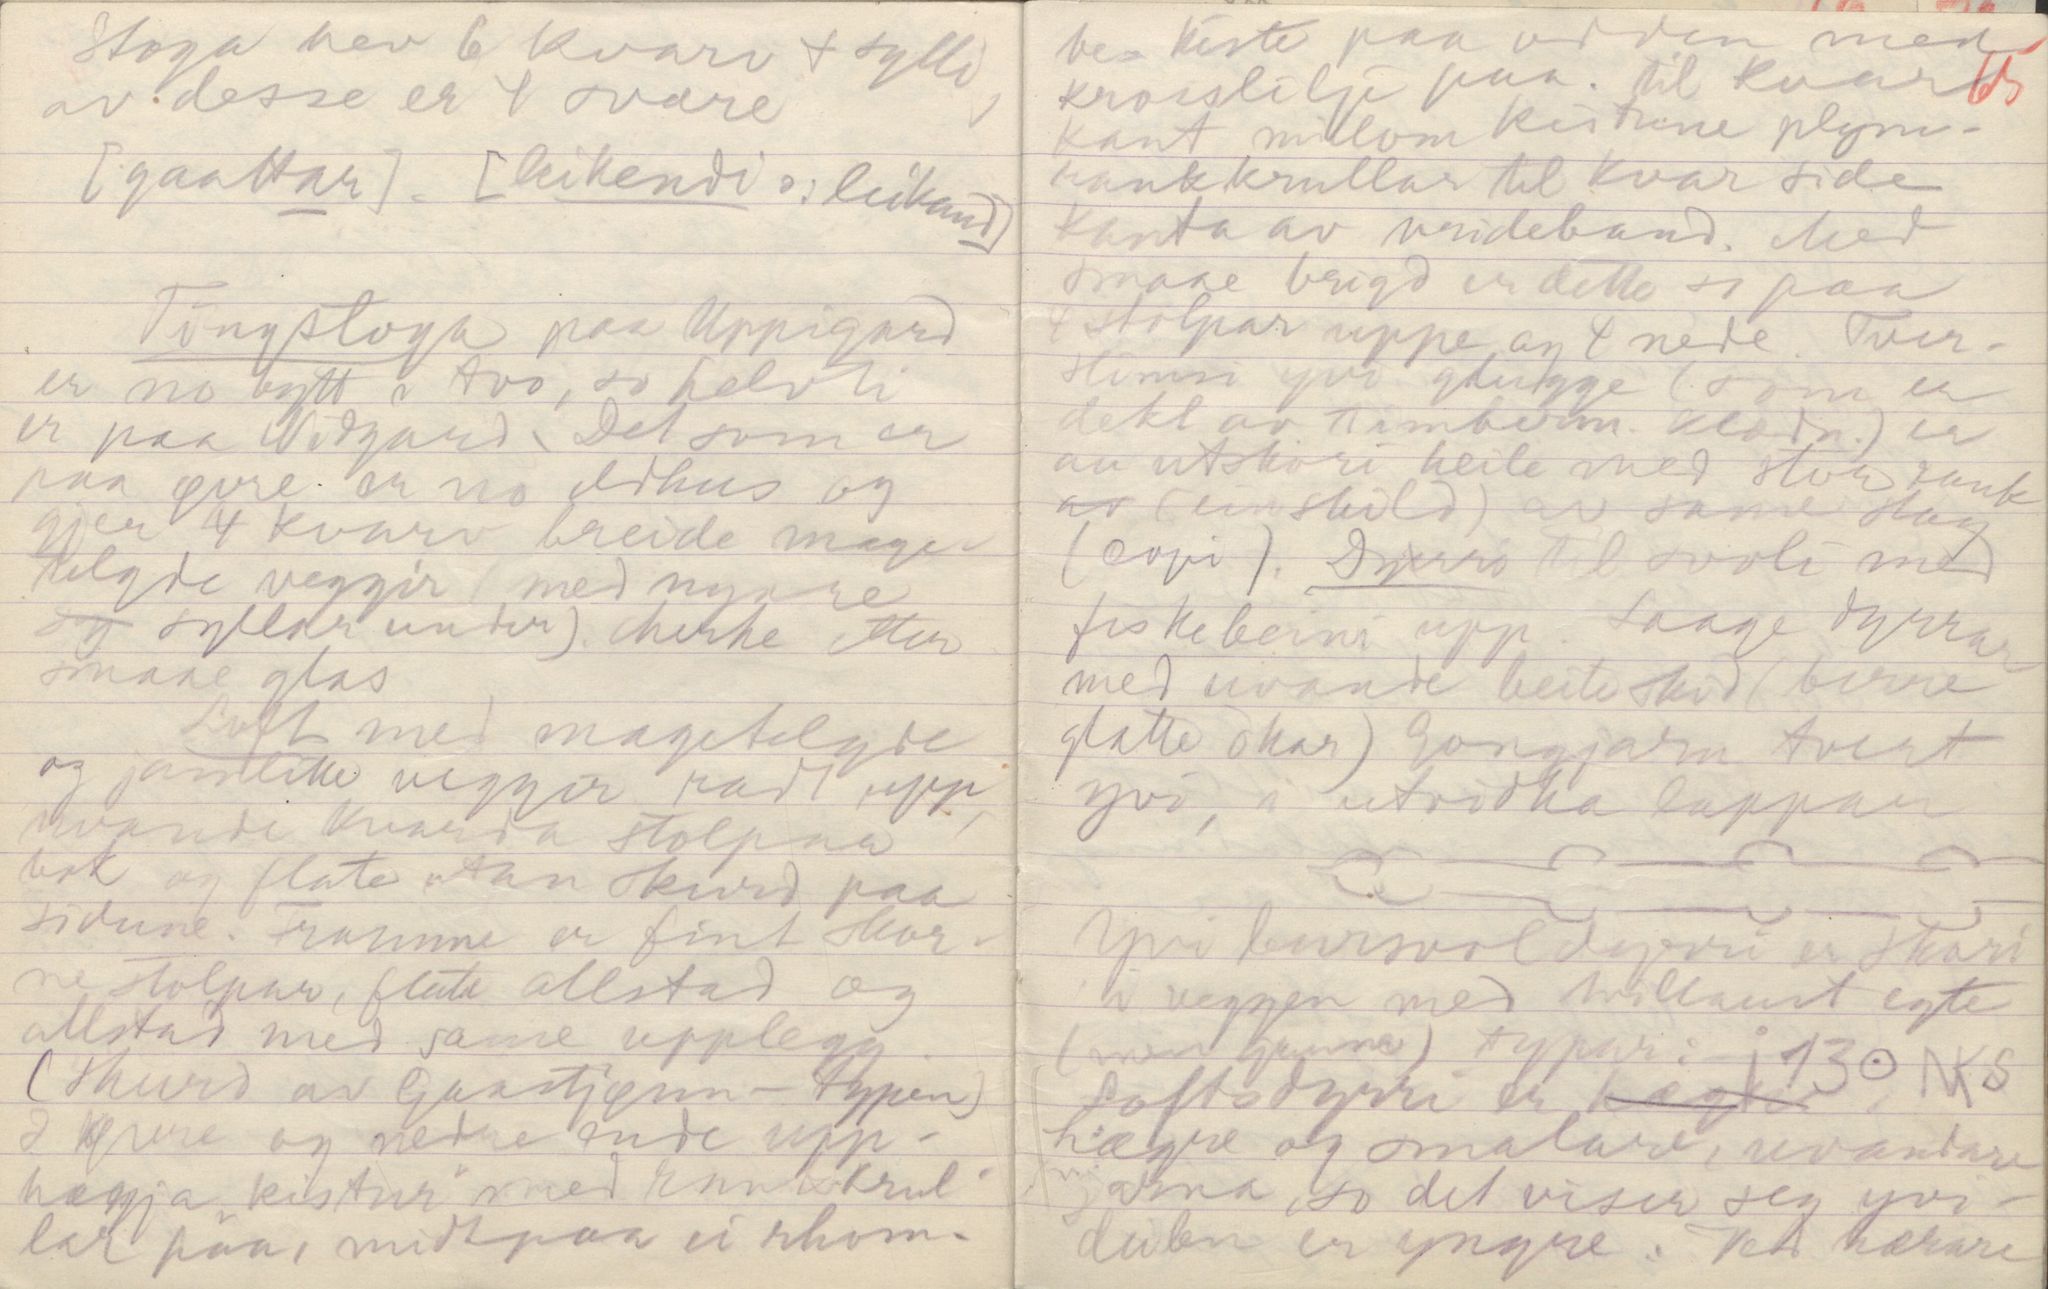 Stoga hev 6 kvarv + sylli,
av desse er 4 svære
[gaattar]. [leikendi ɔ: leikand]
Tingstoga paa Uppigard
er no bytt i tvo, so helvti
er paa Nidgard. Det som er
paa øvre er no eldhus og
gjer 4 kvarv breide mage-
telgde veggir (med nyare
og syllar under). Merke etter
smaae glas
Loft med magetelgde
og jamlike veggir radt upp,
uvande kvarda stolpaa
bak og flate utan skurd paa
sidune. Framme er fint skor-
ne stolpar, flate allstad og
allstad med same upplegg.
(skurd av Gaastjønn-typen)
I øvre og nedre ende upp-
høgja "kistur" med rankekrul-
lar paa, midt paa ei rhom-
be-kiste paa odden med
krosslilje paa. til kvar 65
kant millom kistune plym-
rankkrullar til kvar side
kanta av vrideband. Med
smaae brigd er dette so paa
4 stolpar uppe og 4 nede. Tver-
slimsi yvi glugge (som er
dekt av timberm. klædn.) er
au utskori heile med stor rank
av (einskild) av same slag
(copi). Dyrri til svoli med
fiskebeini upp. Laage dyrrar
med uvande beiteskid (berre
glatte okar) Gongjarn tvert
yvi, i utvidka lappar
Yvi bursvoldyrri er skori
i veggen med tvillaust egte
(men ) typar: 1130 NKS
Loftsdyrri er høgdi
høgre og smalare, uvandare
jarna, so det viser seg yvi-
deilen er yngre. Ved nærare